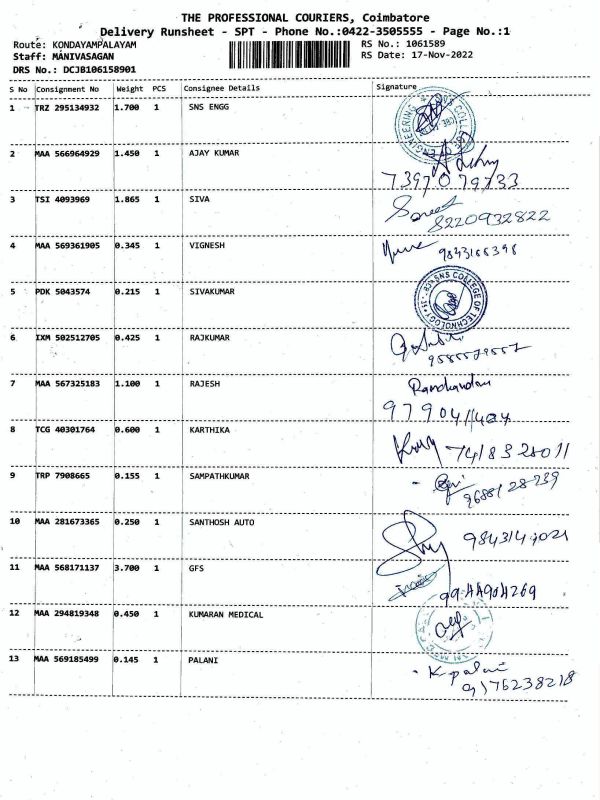 THE PROFESSIONAL COURIERS, Coimbatore
Delivery Runsheet - SPT - Phone No.:0422-3505555 - Page No.:1
Route: KONDAYAMPALAYAM RS No.: 1061589
Staff: MANIVASAGAN RS Date: 17-Nov-2022
DRS No.: DCJB106158901
S No Consignment No Weight PCS Consignee Details Signature
1 TRZ 295134932 1.700 1 SNS ENGG
2 MAA 566964929 1.450 1 AJAY KUMAR
7397079733
3 TSI 4093969 1.865 1 SIVA
8220932822
4 MAA 569361905 0.345 1 VIGNESH
5 PDK 5043574 0.215 1 SIVAKUMAR SNS COLLEGE OF TECHNOLOGY
6 IXM 502512705 0.425 1 RAJKUMAR
7 MAA 567325183 1.100 1 RAJESH
8 TCG 40301764 0.600 1 KARTHIKA
9 TRP 7908665 0.155 1 SAMPATHKUMAR
10 MAA 281673365 0.250 1 SANTHOSH AUTO
11 MAA 568171137 3.700 1 GFS
9944904269
12 MAA 294819348 0.450 1 KUMARAN MEDICAL
13 MAA 569185499 0.145 1 PALANI K palani
9176238218